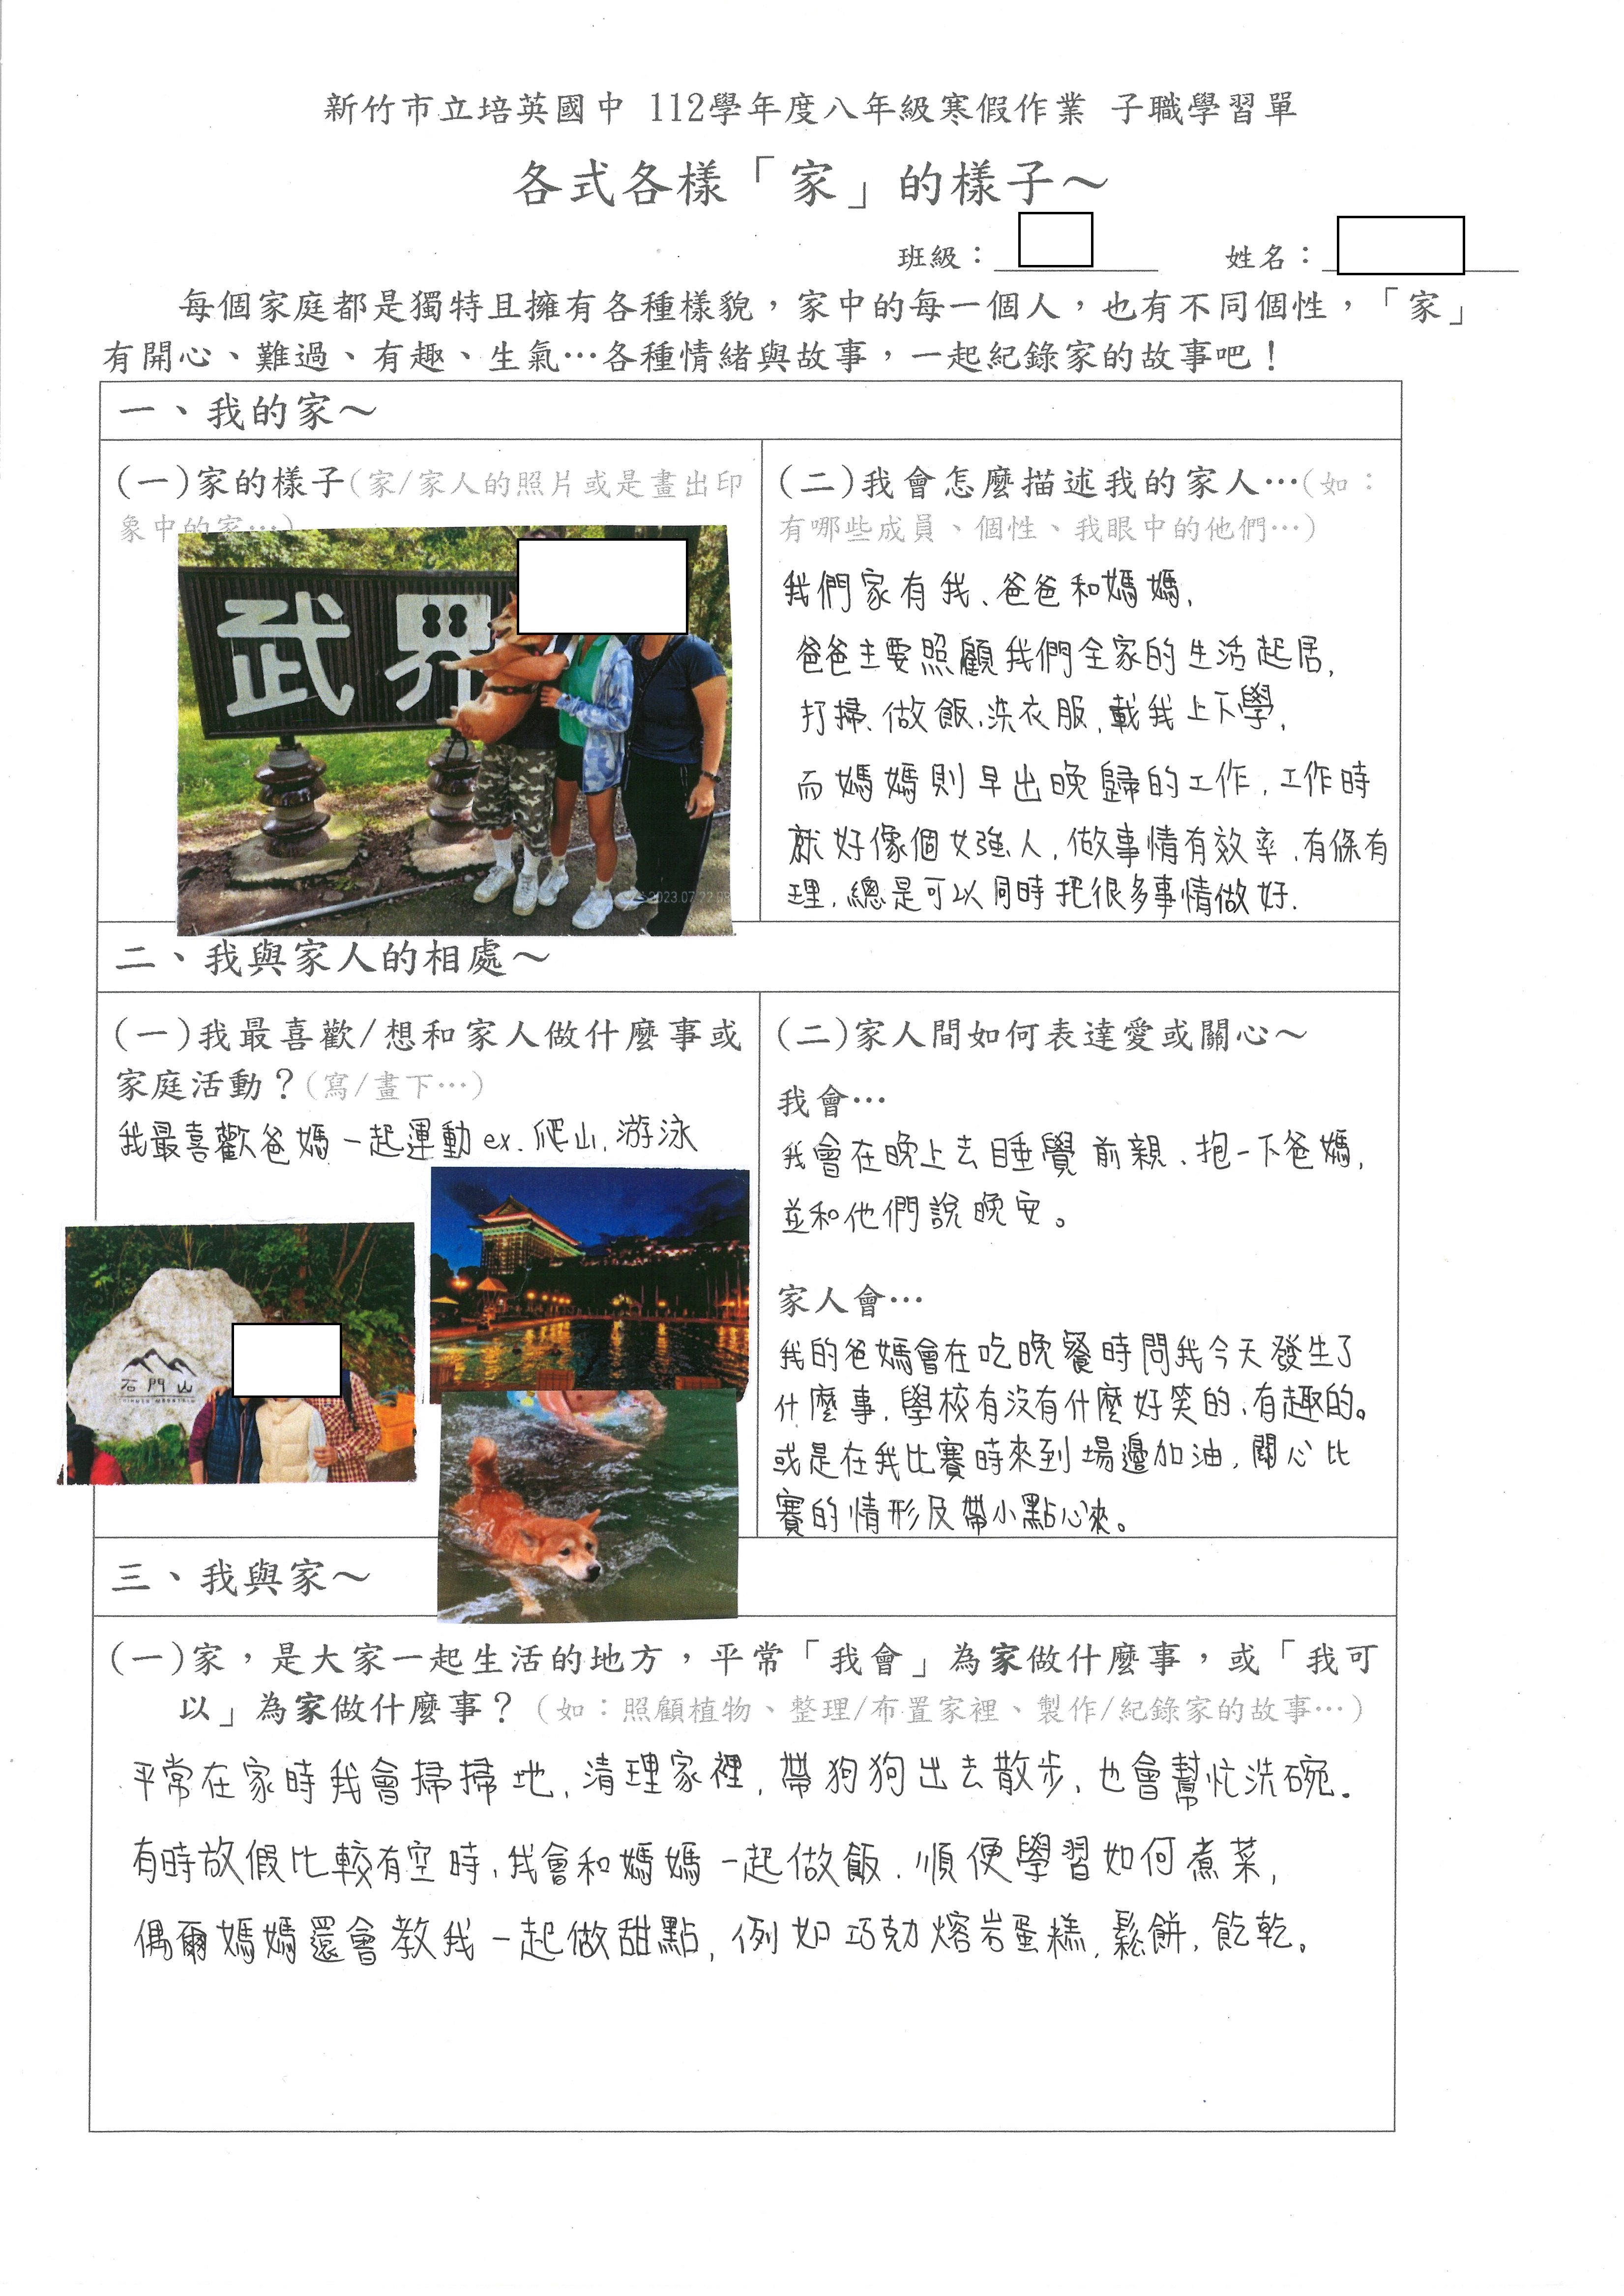 新竹市立培英國中 112學年度八年級寒假作業 子職學習單
各式各樣「家」的樣子～
班級：
姓名：
每個家庭都是獨特且擁有各種樣貌，家中的每一個人，也有不同個性，「家」
有開心、難過、有趣、生氣…各種情緒與故事，一起紀錄家的故事吧！
一、我的家～
(一)家的樣子(家/家人的照片或是畫出印
象中的家…)
武界
2023.07.22
(二)我會怎麼描述我的家人…(如：
有哪些成員、個性、我眼中的他們…)
我們家有我、爸爸和媽媽,
爸爸主要照顧我們全家的生活起居,
打掃、做飯、洗衣服,載我上下學,
而媽媽則早出晚歸的工作,工作時
就好像個女強人,做事情有效率,有條有
理,總是可以同時把很多事情做好.
二、我與家人的相處～
(一)我最喜歡/想和家人做什麼事或
家庭活動？(寫/畫下…)
我最喜歡爸媽一起運動ex.爬山,游泳
石門山
(二)家人間如何表達愛或關心～
我會…
我會在晚上去睡覺前親、抱一下爸媽,
並和他們說晚安。
家人會…
我的爸媽會在吃晚餐時問我今天發生了
什麼事,學校有沒有什麼好笑的、有趣的。
或是在我比賽時來到場邊加油,關心比
賽的情形及帶小點心來。
三、我與家～
(一)家，是大家一起生活的地方，平常「我會」為家做什麼事，或「我可
以」為家做什麼事？（如：照顧植物、整理/布置家裡、製作/紀錄家的故事…）
平常在家時我會掃掃地,清理家裡,帶狗狗出去散步,也會幫忙洗碗.
有時放假比較有空時,我會和媽媽一起做飯.順便學習如何煮菜,
偶爾媽媽還會教我一起做甜點,例如巧克熔岩蛋糕,鬆餅,飥乾。